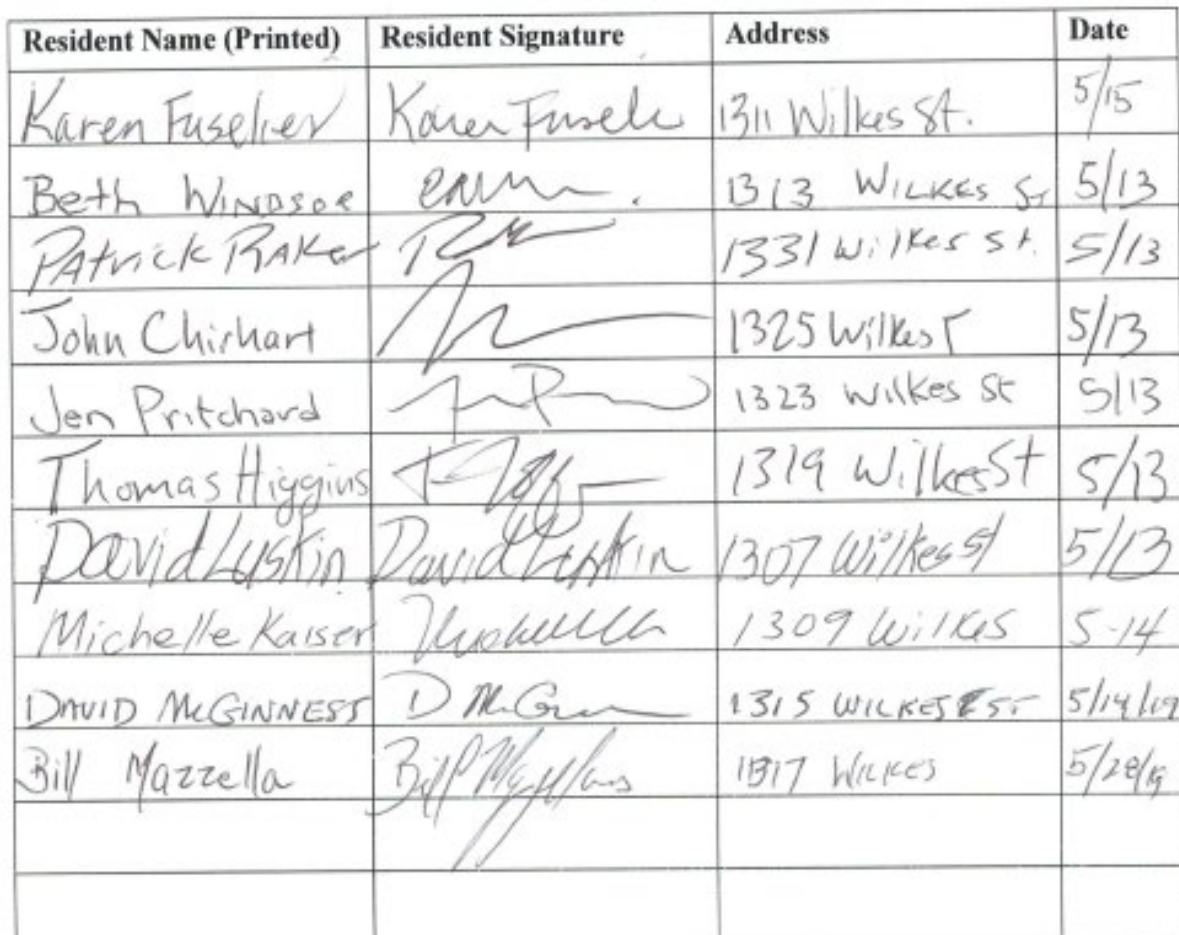 Resident Name (Printed) Resident Signature Address Date
Karen Fuselier Karen Fuseli 1311 Wilkes St. 5/15
Beth Windsor 1313 Wilkes St 5/13
Patrick Raker 1331 Wilkes St. 5/13
John Chirhart 1325 Wilkes 5/13
Jen Pritchard 1323 Wilkes St 5/13
Thomas Higgins 1319 Wilkes St 5/13
David Luskin David Luskin 1307 Wilkes St 5/13
Michelle Kaiser 1309 Wilkes 5-14
DAVID McGINNESS D McG 1315 WILKES ST 5/14/19
Bill Mazzella Bill 1317 Wilkes 5/28/19